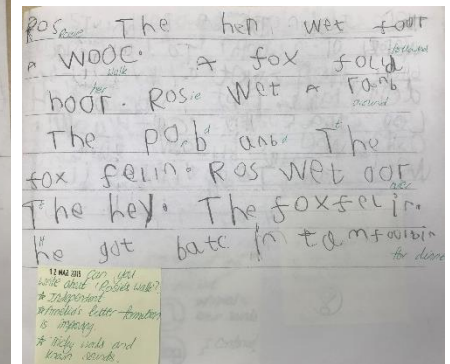 Ros Rosie The hen wet four
a WOOC. walk A fox folld followed
hoor. her Rosie Wet A ranb around
The pob anb The
fox felin. Ros wet oor over
The hey. The fox fel in.
he got batc in tam for din for dinner
12 MAR 2015 Can you
write about 'Rosie's Walk'?
* Independent
* letter formation
is improving.
* Tricky words and
known sounds.